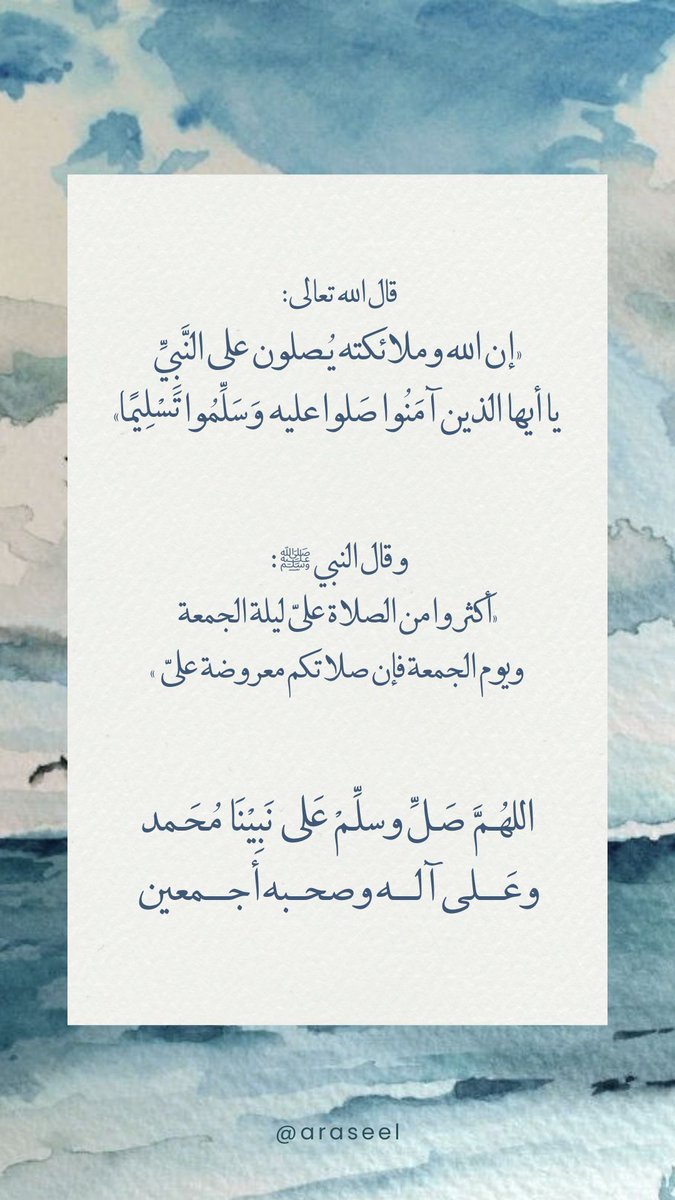 قال الله تعالى:
«إن الله وملائكته يُصلون على النَّبِيِّ
يا أيها الذين آمَنُوا صَلوا عليه وَسَلِّمُوا تَسْلِيمًا»
وقال النبي ﷺ:
«أكثروا من الصلاة عليّ ليلة الجمعة
ويوم الجمعة فإن صلاتكم معروضة عليّ»
اللهُمَّ صَلِّ وسلِّمْ عَلى نَبِيْنَا مُحَمد
وعَــلـى آلــه وصحــبه أجــمعين
@araseel